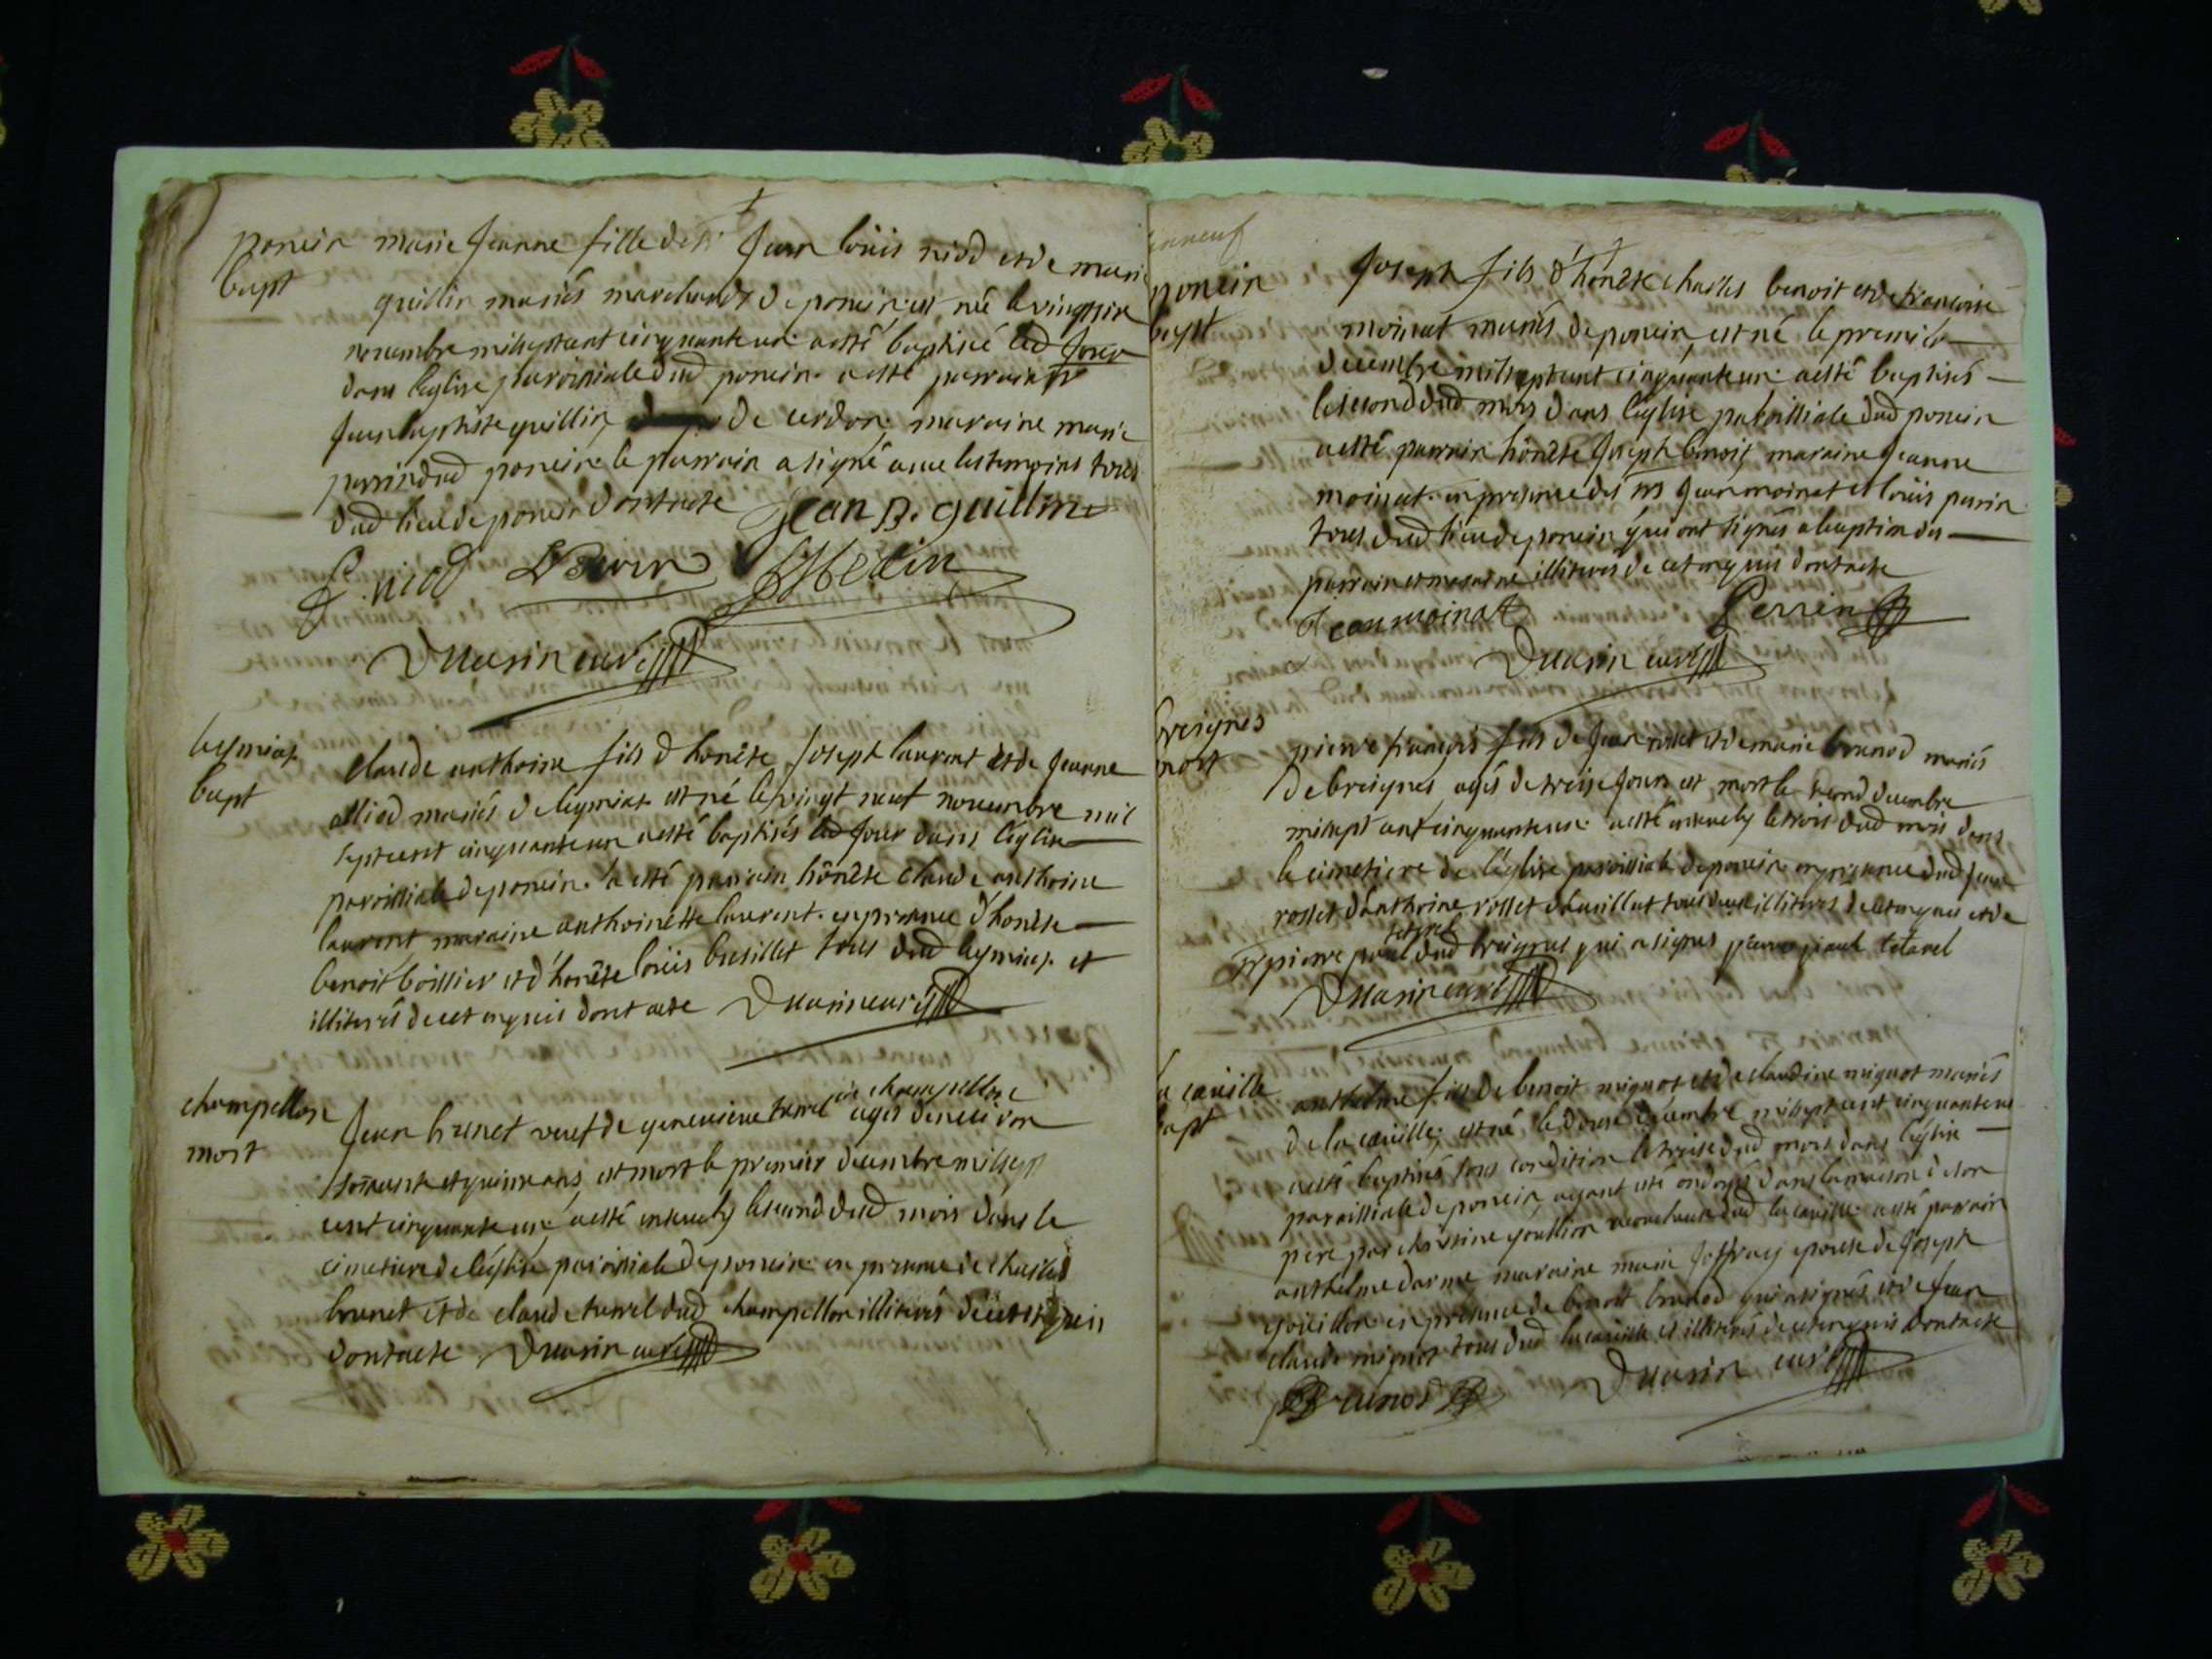 poncin marie Jeanne fille de Sr Jean loüis niod et de marie
bapt quillin mariés marchands de poncin, est née le vingt six
novembre mil sept cent cinquante un a esté baptisée led Jour
dans l'eglise parroissiale dud poncin a esté parrain Sr
Jean baptiste quillin de cerdon, maraine marie
perrin dud poncin le parrain a signé avec les temoins tous
dud lieu de poncin dont acte Jean B. Quillin
niod Perrin
Duasin curé
leymiat claude anthoine fils d'honête Joseph laurent et de Jeanne
bapt alliod mariés de leymiat est né le vingt neuf novembre mil
sept cent cinquante un a esté baptisés led Jour dans l'église
paroissiale de poncin a esté parrain honête claude anthoine
laurent, maraine anthoinette laurent en presence d'honête
benoit boillier et d'honête loüis busillet tous dud leymiat et
illiterés de cet enquis dont acte Duasin curé
champellon Jean brunet veuf de genevieve turrel de champellon agés d'environ
mort soixante et quinze ans, est mort le premier decembre mil sept
cent cinquante un, a esté ensevely le second dud mois dans le
cimetiere de l'église paroissiale de poncin en presence de charles
brunet et de claude turrel dud champellon illiterés de cet enquis
dont acte Duasin curé
poncin Joseph fils d'honête charles benoit et de francoise
bapt moinat mariés de poncin, est né le premier
decembre mil sept cent cinquante un a esté baptisés
le second dud mois dans l'église paroissiale dud poncin
a esté parrain honête Joseph benoit, maraine Jeanne
moinat en presence des srs Jean moinat et loüis perrin
tous dud lieu de poncin qui ont signés a l'exception des
parrain et maraine illiterés de cet enquis dont acte
Jean moinat Perrin
Duasin curé
breignes pierre françois fils de Jean rosset et de marie brunod mariés
mort de breignes, agés de treise Jours est mort le second decembre
mil sept cent cinquante un a esté ensevely le trois dud mois dans
le cimetiere de l'église paroissiale de poncin en presence dud Jean
rosset d'anthoine rosset tous deux illiterés de cet enquis et de
Sr pierre dud breignes qui a signés
Duasin curé
la caville anthelme fils de benoit mignot et de claudine mignot mariés
bapt de la caville, est né le douse decembre mil sept cent cinquante un
a esté baptisés sous condition le treise dud mois dans l'église
paroissiale de poncin, ayant eté ondoyé dans la maison de son
pere par christine goullion acoucheuse dud la caville a esté parrain
anthelme darme maraine marie Joffray epouse de Joseph
goüillon en presence de benoit brunod qui a signés et de Jean
claude mignot tous dud la caville et illiterés de cet enquis dont acte
Brunod Duasin curé